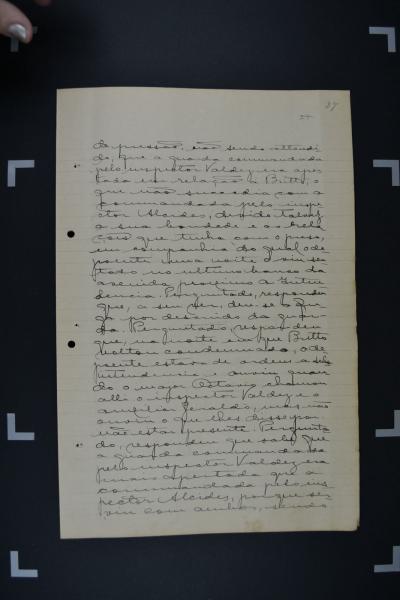 37
da pressão, não sendo attendi
do; que a guarda commandada
pelo inspector Valdez era aper
tada em relação a Britto, o
que não succedia com a
commandada pelo inspe
ctor Alcides, devido talvez
a sua bondade e as rela
ções que tinha com o preso,
em companhia do qual o de
poente uma noite o viu sen
tado no ultimo banco da
avenida proximo a Inten
dencia. Perguntado, respondeu
que, a seu ver, deu-se a fu
ga por descuido da guar
da. Perguntado, respondeu
que, na noite em que Britto
voltou condemnado, o de
poente estava de ordem a
intendencia e ouviu quan
do o major Octavio chamou
alli o inspector Valdez e o
auxiliar Geraldo, mas não
ouviu o que lhes disse por
não estar presente. Pergunta
do, respondeu que sabe que
a guarda commandada
pelo inspector Valdez era
mais apertada que a
commandada pelo ins
pector Alcides, porque ser
viu com ambos, sendo